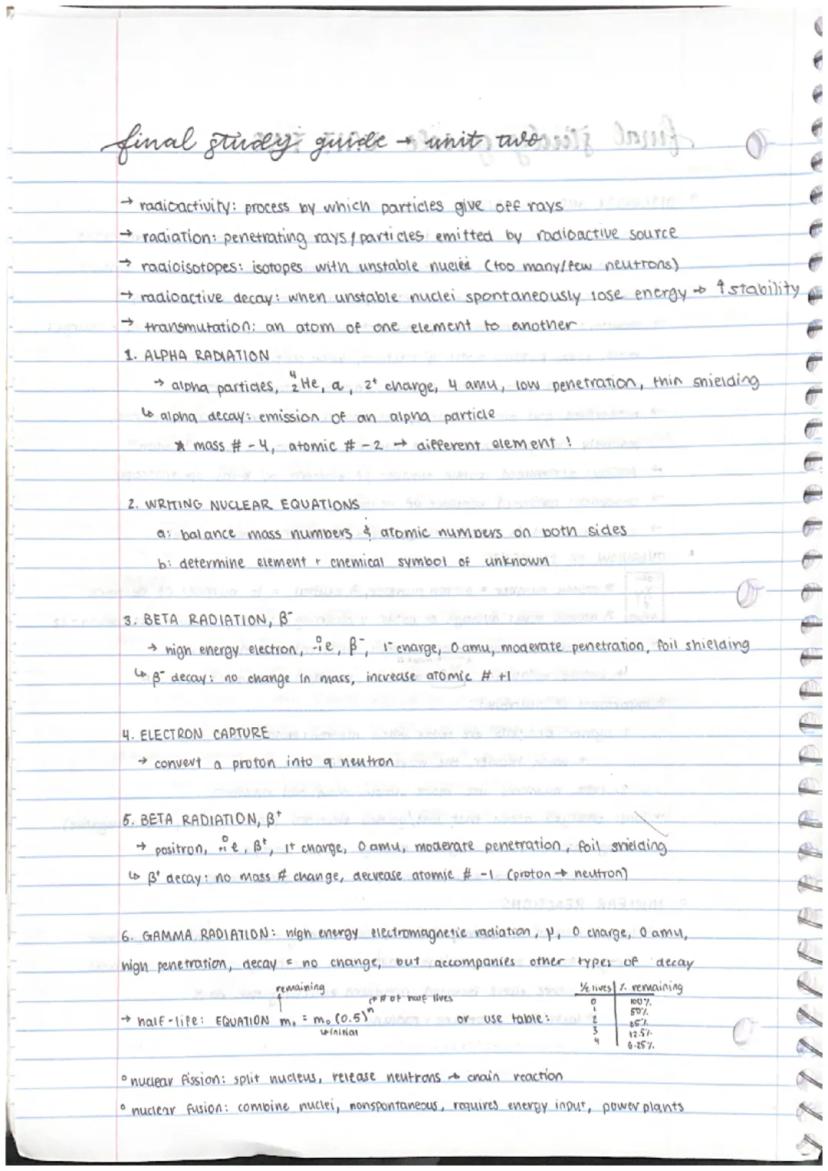 final study guide → unit two
→ radioactivity: process by which particles give off rays
→ radiation: penetrating rays/particles emitted by radioactive source
→ radioisotopes: isotopes with unstable nuclei (too many/few neutrons)
→ radioactive decay: when unstable nuclei spontaneously lose energy → ↑stability
→ transmutation: an atom of one element to another
1. ALPHA RADIATION
→ alpha particles, ⁴₂He, α, 2⁺ charge, 4 amu, low penetration, thin shielding
↳ alpha decay: emission of an alpha particle
* mass # -4, atomic # -2 → different element!
2. WRITING NUCLEAR EQUATIONS
a: balance mass numbers & atomic numbers on both sides
b: determine element + chemical symbol of unknown
3. BETA RADIATION, β⁻
→ high energy electron, ⁰₋₁e, β⁻, 1⁻ charge, 0 amu, moderate penetration, foil shielding
↳ β⁻ decay: no change in mass, increase atomic # +1
4. ELECTRON CAPTURE
→ convert a proton into a neutron
5. BETA RADIATION, β⁺
→ positron, ⁰₊₁e, β⁺, 1+ charge, 0 amu, moderate penetration, foil shielding
↳ β⁺ decay: no mass # change, decrease atomic # -1 (proton → neutron)
6. GAMMA RADIATION: high energy electromagnetic radiation, γ, 0 charge, 0 amu,
high penetration, decay = no change, but accompanies other types of decay
remaining
# of half lives
→ half-life: EQUATION m₁ = m₀ (0.5)ⁿ or use table:
initial
½ lives | % remaining
0 100%
1 50%
2 25%
3 12.5%
4 6.25%
° nuclear fission: split nucleus, release neutrons → chain reaction
° nuclear fusion: combine nuclei, nonspontaneous, requires energy input, power plants